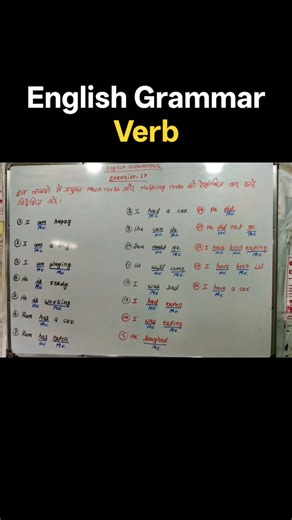 English Grammar
Verb
English Grammar
Exercise-27
इन वाक्यों में प्रयुक्त Main verbs और Helping verbs को रेखांकित कर उन्हें
① I am happy.
MV
② I am a
MV
③ I am playing
HV MV
④ He is ready.
MV
⑤ He is working
HV MV
⑥ Ram has a car.
MV
⑦ Ram has eaten
HV MV
⑧ I had a car.
MV
⑨ She can do.
HV MV
⑩ You could go.
HV MV
⑪ He will come
HV MV
⑫ I was sad
MV
⑬ I had eaten
HV MV
⑭ I was eating
HV MV
⑮ He laughed
MV
⑯ He did
MV
⑰ He did not go
HV MV
I have been eating
HV HV MV
I have been
HV MV
I have a car.
MV